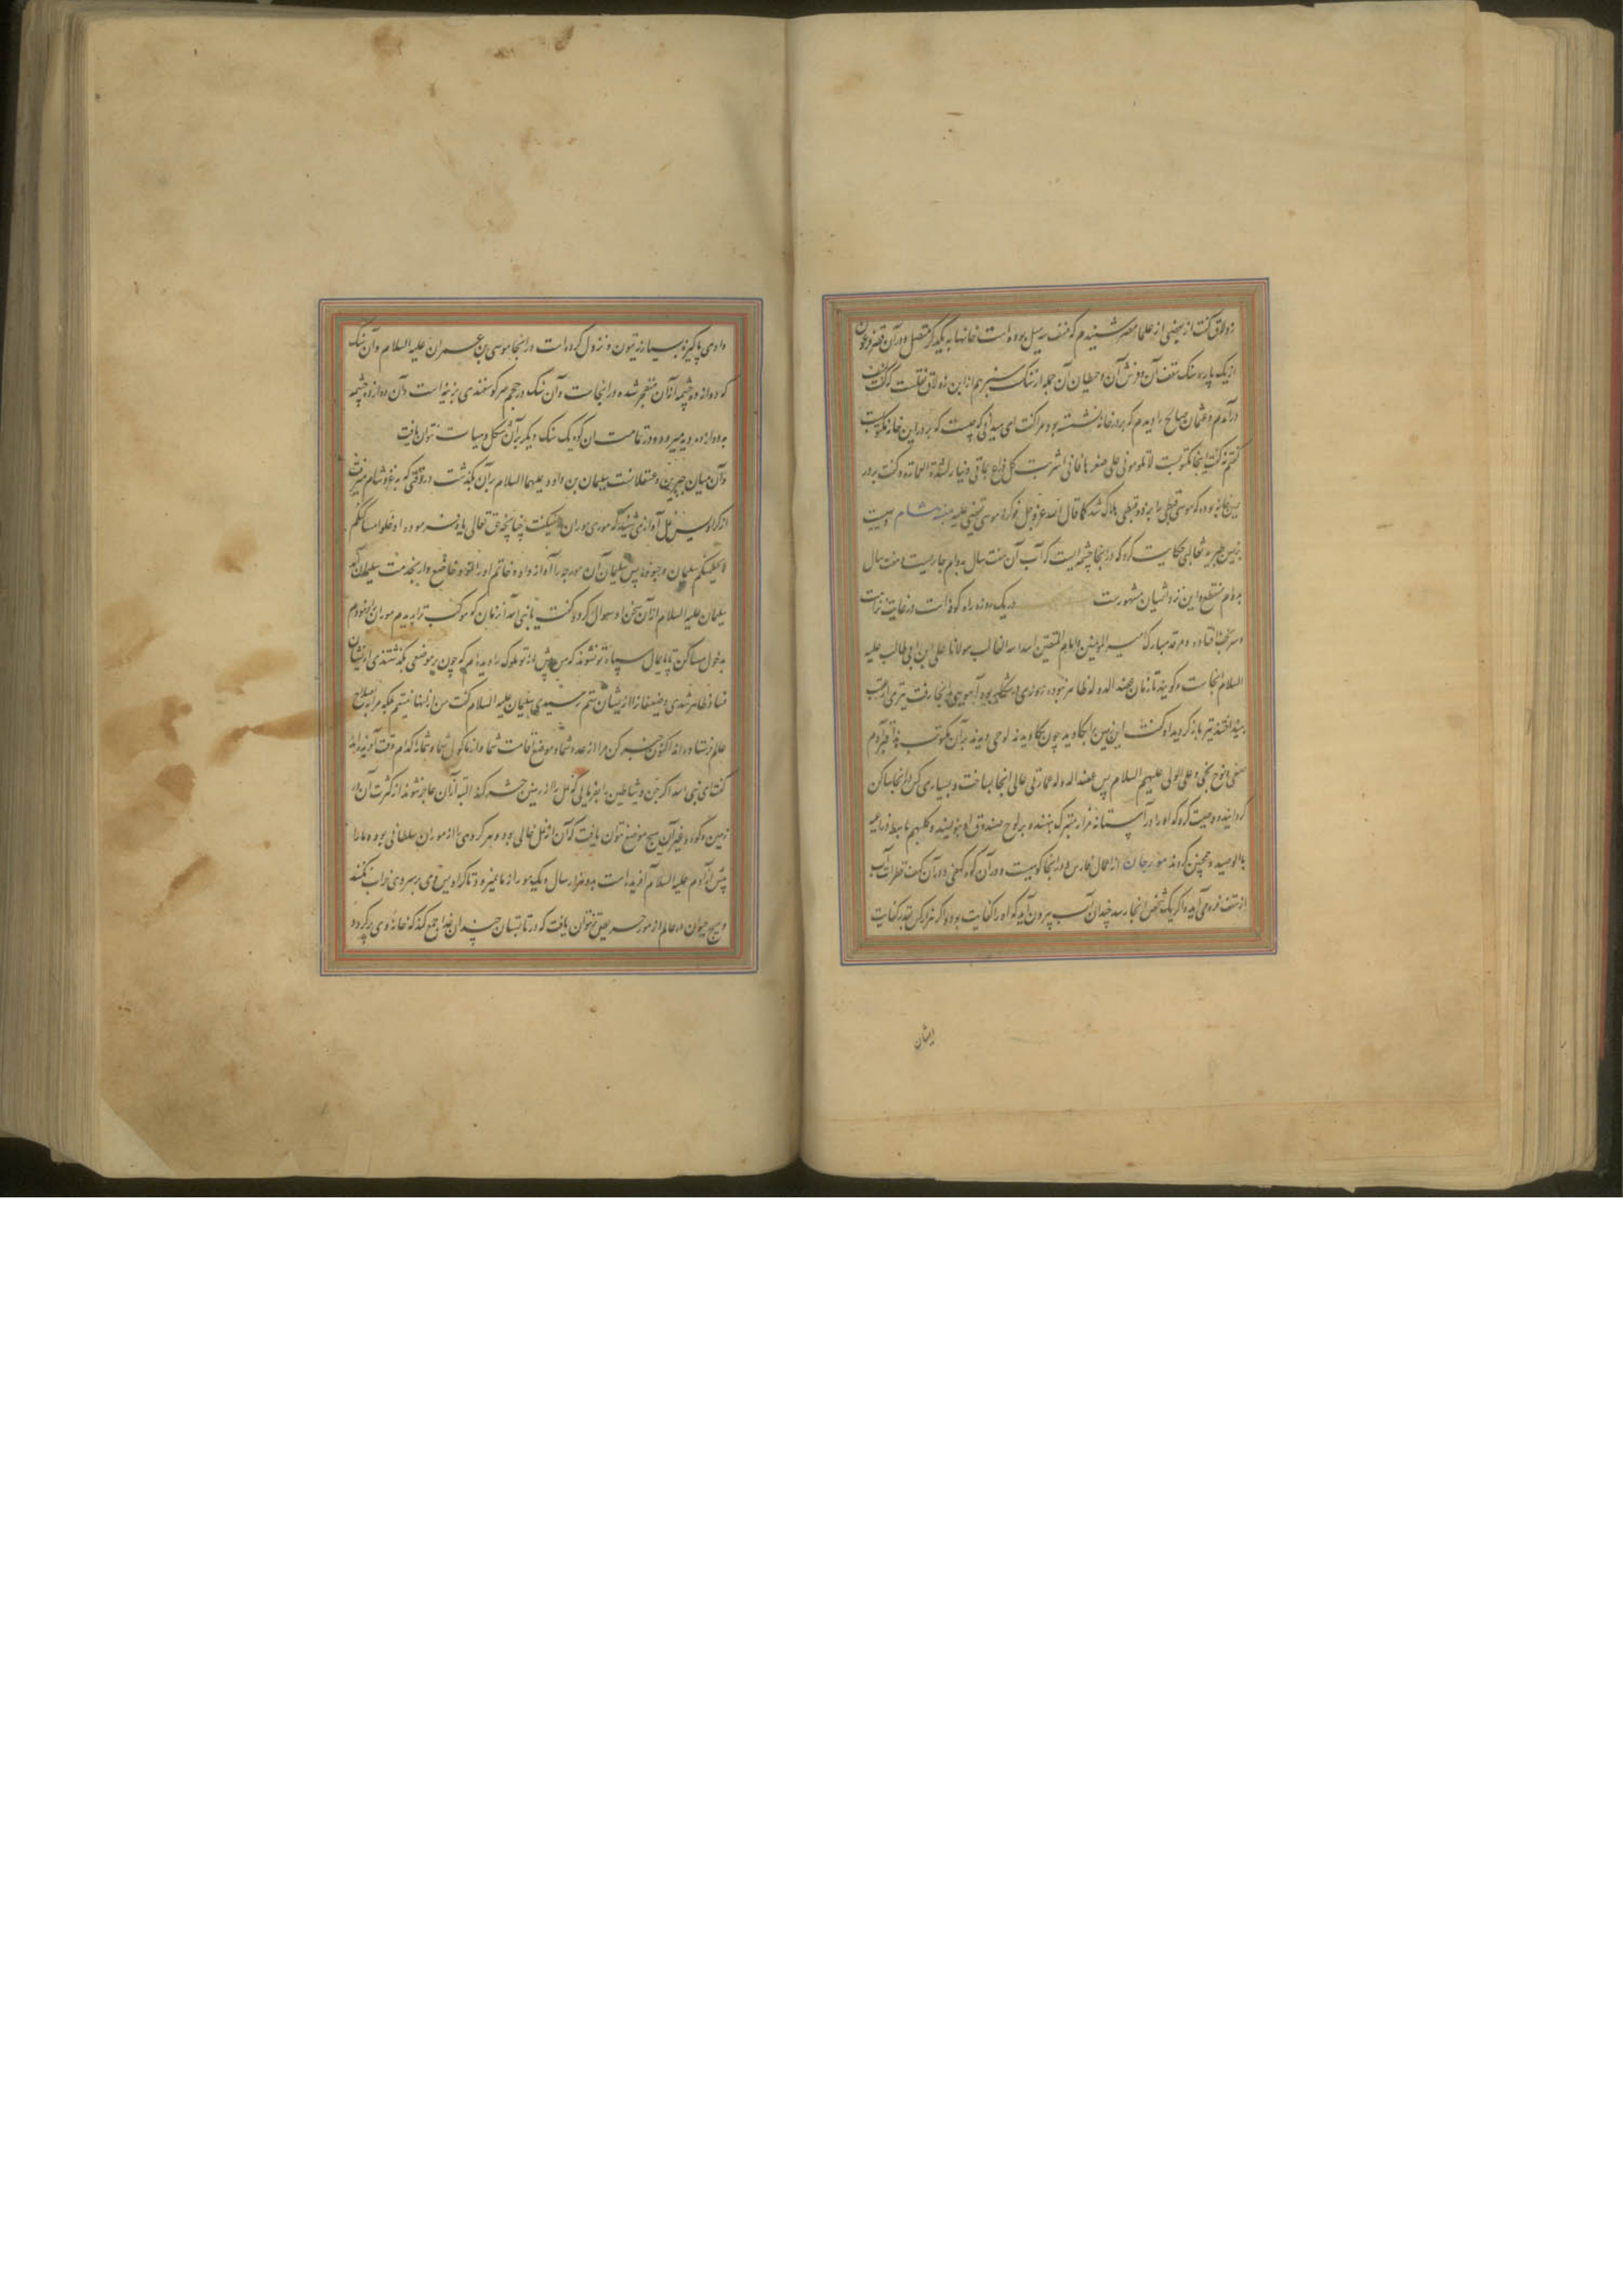 زولاق گفت از بعضی از علما مصر شنیدم که منف سی میل بوده است خانها به یکدیگر متصل و در آن قصر فرعون
از یک پاره سنک سقف آن و فرش آن و حیطان آن جمله از سنک سبز هم از ابن زولاق نقلست که گفت بمنف
در آمدم و عثمان صالح را دیدم که بر در خانه نشسته بود مرا گفت ای میدانی که چیست که بر در این خانه مکتوبست
گفتم نه گفت اینجا مکتوبست لا تلومونی علی صغرها فانی اشتریت کل ذراع بماتی دینار لشدة العمارة و گفت بر در
این خانه بوده که موسی قبطی را بزد و قبطی هلاک شد کما قال الله عز و جل فوکزه موسی فقضی علیه هشام
بزمین جزیره ثعالبی حکایت کرد که در اینجا چشمه ایست که آب آن هفت سال بدوام جاریست و هفت سال
بدوام منقطع و این نزد ایشان مشهورست در یک روزه راه کوفه است در غایت نزاهت
افتاده و مرقد مبارک امیر المومنین و امام المتقین اسد الله الغالب مولانا علی ابن ابی طالب علیه
السلام آنجاست و گویند تا زمان عضد الدوله ظاهر نبوده روزی در شکار بود آهویی به آنجا رفت تیری از عقب
بینداختند تیر باز گردید او گفت این زمین را بکاوید چون بکاویدند لوحی دیدند بر آن مکتوب هذا قبر آدم
صفی و نوح نجی و علی الولی علیهم السلام پس عضد الدوله عمارتی عالی آنجا بساخت و بسیاری کس را آنجا ساکن
گردانید و وصیت کرد که او را در آستانه مزار متبرک بنهند و بر لوح صندوق او بنویسند و کلبهم باسط ذراعیه
بالوصید و همچنین کردند مورجان از اعمال فارس و در اینجا کوهیست و در آن کوه کهفی و در آن کهف قطرات آب
از سقف فرو می آید و اگر یک شخص آنجا رسد چندان آب بیرون آید که او را کفایت بود و اگر هزار کس بقدر کفایت
ایشان
وادی پاکیزه بسیار زیتون و نزول کرده است در اینجا موسی بن عمران علیه السلام و آن سنک
که دوازده چشمه از آن منفجر شده در انجاست و آن سنک در حجم سر گوسفندی بزیر است و آن دوازده چشمه
به دوازده دیه میرود و در تمامت آن کوه یک سنک دیگر بر آن شکل و هیات نتوان یافت
و آن میان جبرین و عسقلانست سلیمان بن داود علیهما السلام بر آن بگذشت در وقتی که بغزو شام میرفت
از کرادیس نمل آوازی شنید که موری موران را میگفت چنانچه حق تعالی یاد فرموده ادخلوا مساکنکم
لا یحطمنکم سلیمان و جنوده پس سلیمان آن مورچه را آواز داد و خاتم او را نمود خاضع وار بخدمت سلیمان آمد
سلیمان علیه السلام از آن سخن او سوال کرد گفت یا نبی الله از زمان که موکب ترا دیدم موران را فرمودم
بدخول مساکن تا پایمال سپاه تو نشوند که من پیش از تو ملوک را دیده ام که چون بر موضعی بگذشتندی از ایشان
فساد ظاهر شدی و ضعفا را از ایشان ستم رسیدی سلیمان علیه السلام گفت من از اینها نیستم بلکه مرا به اصلاح
عالم فرستاده اند اکنون خبر کن مرا از عدد شما و موضع اقامت شما و از ماکول شما و شما را کدام وقت آفریده اند
گفت ای نبی الله اگر جن و شیاطین را بفرمایی که نمل را از زمین حشر کند البته از آن عاجز شوند از کثرت آن و در
زمین و کوه و غیر آن هیچ موضع نتوان یافت که آن از نمل خالی بود و هر گروهی را از موران سلطانی بود و ما را
پیش از آدم علیه السلام آفریده است بدو هزار سال و یک مور از ما نمیرد تا کرادیس وی بر سر وی تراب نکنند
و هیچ حیوان در عالم از مور حریص تر نتوان یافت که در تابستان چندان غذا جمع کند که خانه وی پر گردد